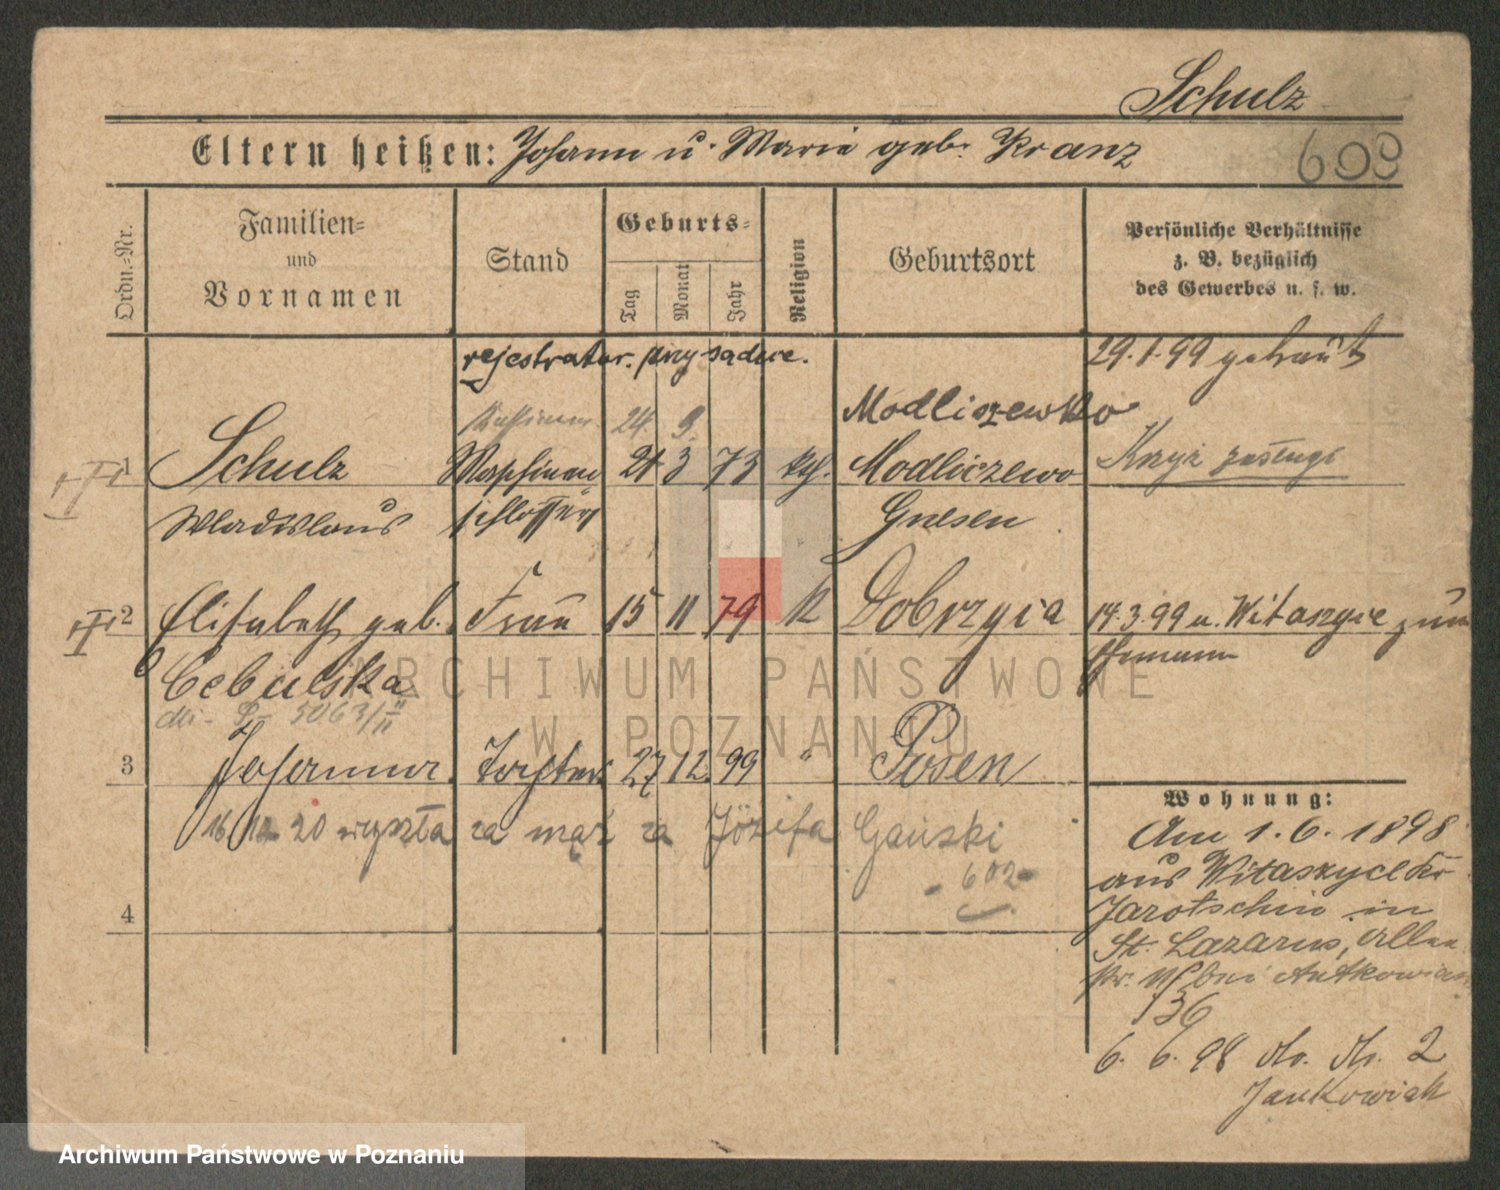 Schulz
Eltern heißen: Johann u. Marie geb. Kranz
609
Ordn.-Nr.
Familien-
und
Vornamen
Stand
Geburts-
Tag
Monat
Jahr
Religion
Geburtsort
Persönliche Verhältnisse
z. B. bezüglich
des Gewerbes u. s. w.
rejestrator. przy sądzie.
29.1.99 getraut
24. 9.
Modliszewko
1 Schulz 24 3 73 kth. Modliczewo
Krzyż zasługi
Wladislaus schlosser Gnesen
2 Elisabeth geb. Frau 15 11 79 k Dobrzyca
14.3.99 u. Witaszyce zum
Ehemann
Cebulska
5063/II
3 Johanna. Tochter 27 12. 99 " Posen
16/12 20 wyszła za mąż za Józefa Gański
- 602 -
4
Wohnung:
Am 1.6.1898
aus Witaszyce Kr
Jarotschin in
St. Lazarus,
bei Antkowiak
136
6. 6. 98 do. do. 2
Jankowiak
ARCHIWUM PAŃSTWOWE
W POZNANIU
Archiwum Państwowe w Poznaniu